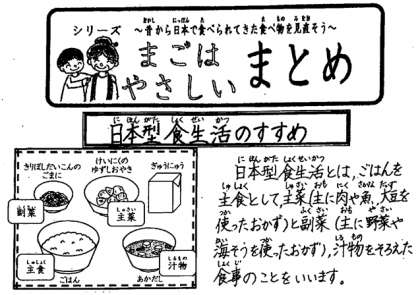 シリーズ ～昔から日本で食べられてきた食べ物を見直そう～
まごは
やさしい
まとめ
日本型食生活のすすめ
きりぼしだいこんの
ごまに
けいにくの
ゆずしおやき
ぎゅうにゅう
副菜
主菜
主食
汁物
ごはん
あかだし
日本型食生活とは、ごはんを
主食として、主菜(主に肉や魚、大豆を
使ったおかず)と副菜(主に野菜や
海そうを使ったおかず)、汁物をそろえた
食事のことをいいます。